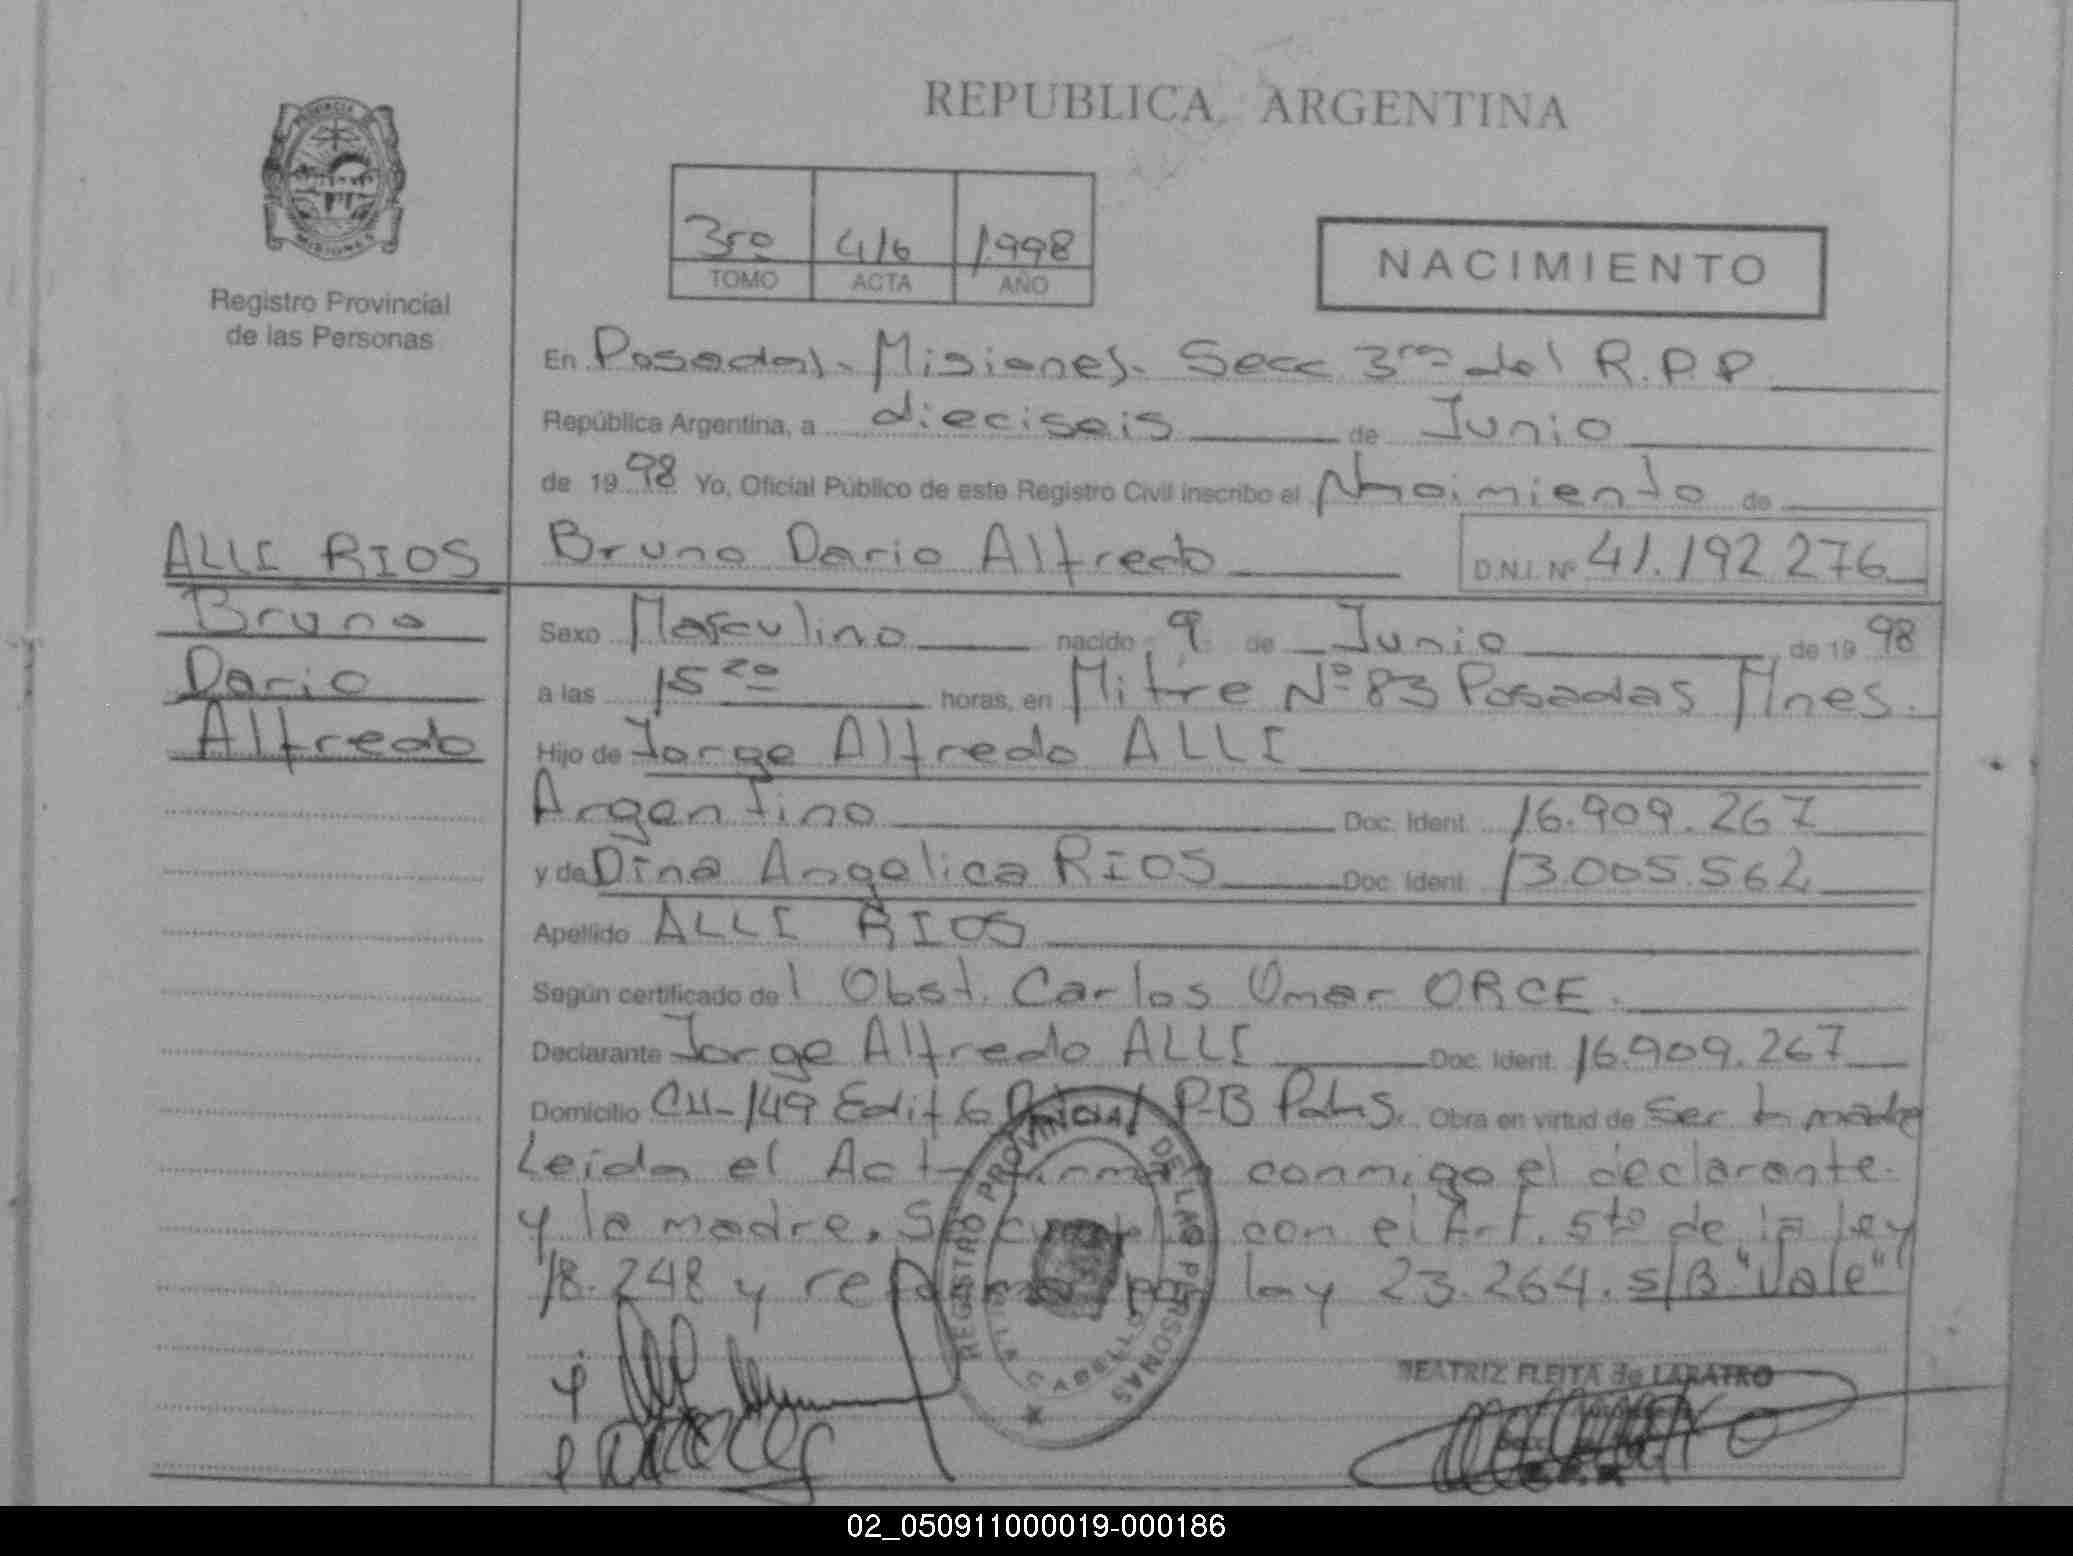 REPUBLICA ARGENTINA
PROVINCIA DE
MISIONES
Registro Provincial
de las Personas
3ro 416 1.998
TOMO ACTA AÑO
NACIMIENTO
En Posadas - Misiones. Secc 3ra del R.P.P
República Argentina, a dieciseis de Junio
de 1998 Yo, Oficial Público de este Registro Civil inscribo el Nacimiento de
ALLI RIOS Bruno Dario Alfredo D.N.I. Nº 41.192.276
Bruno
Dario
Alfredo
Sexo Masculino nacido 9 de Junio de 1998
a las 15 20 horas, en Mitre Nº 83 Posadas Mnes.
Hijo de Jorge Alfredo ALLI
Argentino Doc. Ident. 16.909.267
y de Dina Angelica RIOS Doc. Ident. 13.005.562
Apellido ALLI RIOS
Según certificado del Obst. Carlos Omar ORCE.
Declarante Jorge Alfredo ALLI Doc. Ident. 16.909.267
Domicilio CH-149 Edif 6 P-B Pdas. Obra en virtud de ser la madre
Leida el Acta firman conmigo el declarante
y la madre. Se cumple con el Art. 5to de la ley
18.248 y reforma por ley 23.264. s/B "Vale"
REGISTRO PROVINCIAL DE LAS PERSONAS
VILLA CABELLO
BEATRIZ FLEITA de LARATRO
02_050911000019-000186